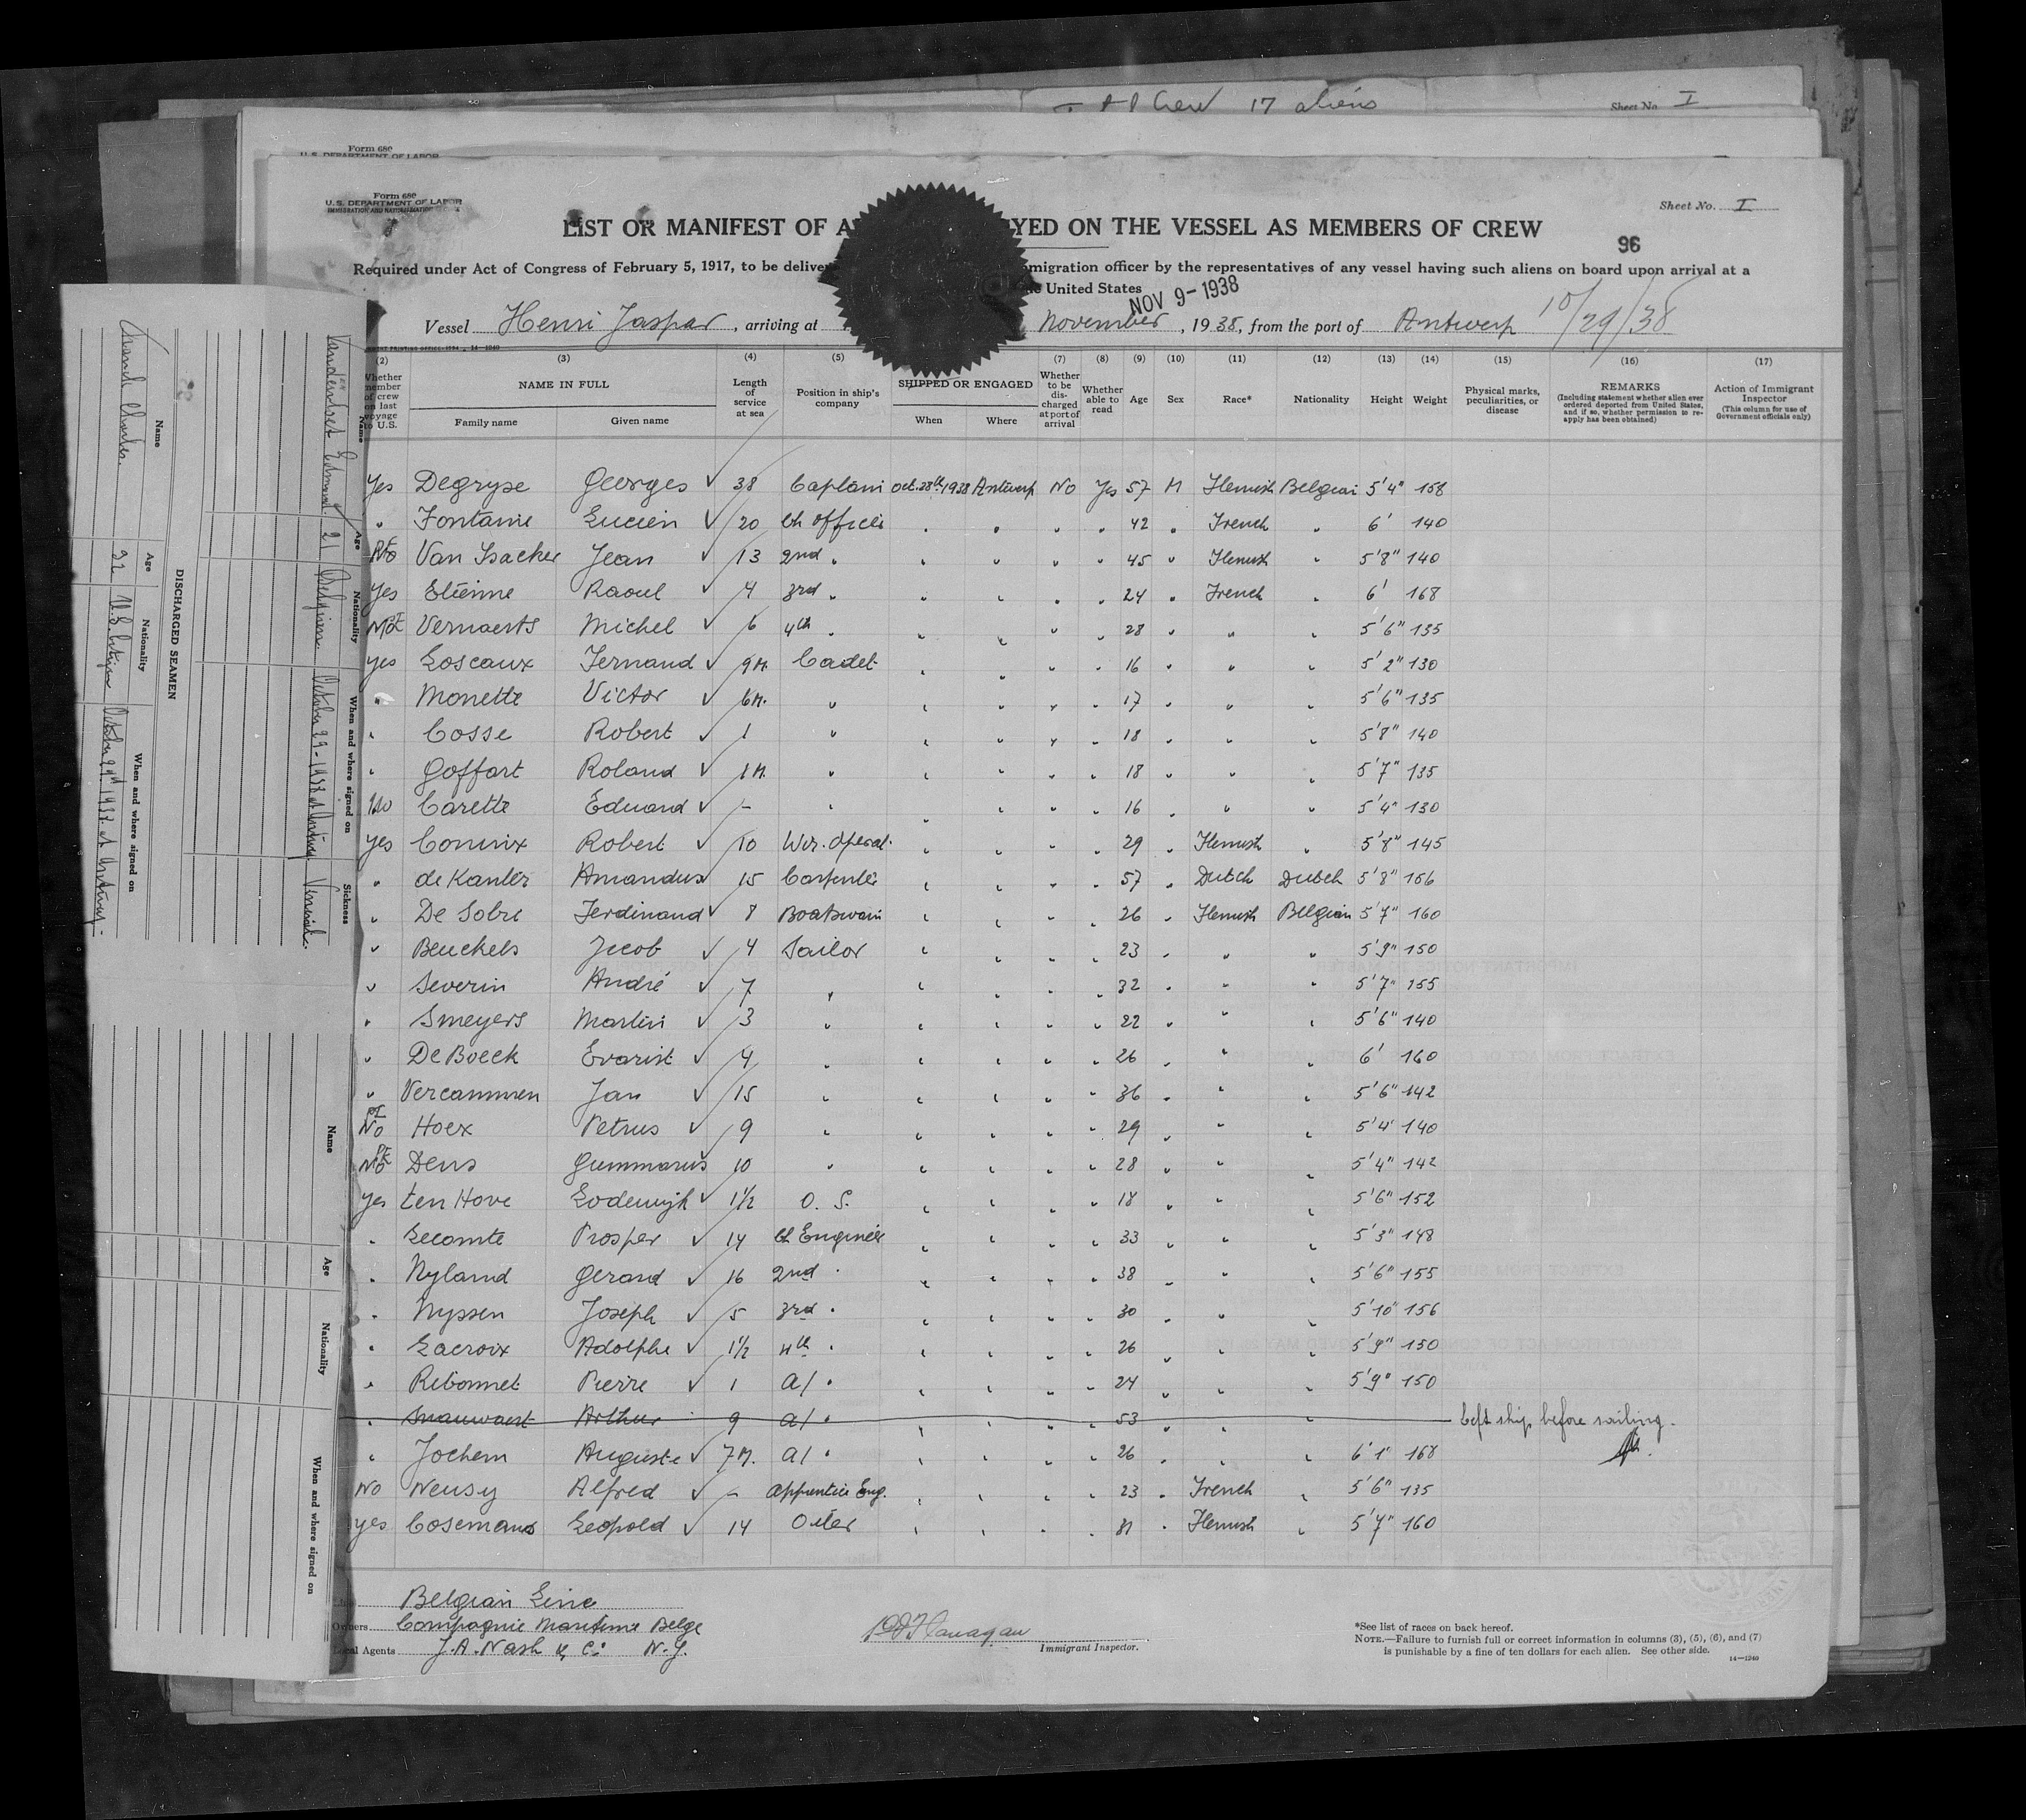 I & I Crew 17 aliens Sheet No. I
Form 680
U. S. DEPARTMENT OF LABOR
Form 680
U. S. DEPARTMENT OF LABOR
IMMIGRATION AND NATURALIZATION SERVICE
Sheet No. I
LIST OR MANIFEST OF A YED ON THE VESSEL AS MEMBERS OF CREW
96
Required under Act of Congress of February 5, 1917, to be deliver mmigration officer by the representatives of any vessel having such aliens on board upon arrival at a
United States
NOV 9-1938
Vessel Henri Jaspar, arriving at November, 1938, from the port of Antwerp 10/29/38
(2) (3) (4) (5) (7) (8) (9) (10) (11) (12) (13) (14) (15) (16) (17)
Whether member of crew on last voyage to U.S. NAME IN FULL Length of service at sea Position in ship's company SHIPPED OR ENGAGED Whether to be discharged at port of arrival Whether able to read Age Sex Race* Nationality Height Weight Physical marks, peculiarities, or disease REMARKS (Including statement whether alien ever ordered deported from United States, and if so, whether permission to reapply has been obtained) Action of Immigrant Inspector (This column for use of Government officials only)
Family name Given name When Where
Yes Degryse Georges 38 Captain Oct. 28th 1938 Antwerp No Yes 57 M Flemish Belgian 5'4" 158
" Fontaine Lucien 20 Ch officer " " " " 42 " French " 6' 140
No Van Isacker Jean 13 2nd " " " " " 45 " Flemish " 5'8" 140
Yes Etienne Raoul 4 3rd " " " " " 24 " French " 6' 168
No Vernaerts Michel 6 4th " " " " " 28 " " " 5'6" 135
yes Loscaux Fernand 9M. Cadet " " " " 16 " " " 5'2" 130
" Monette Victor 6M. " " " " " 17 " " " 5'6" 135
" Cosse Robert 1 " " " " " 18 " " " 5'8" 140
" Goffart Roland 1M. " " " " " 18 " " " 5'7" 135
No Carette Eduard - " " " " " 16 " " " 5'4" 130
yes Coninx Robert 10 Wir. Operat. " " " " 29 " Flemish " 5'8" 145
" de Kanter Amandus 15 Carpenter " " " " 57 " Dutch Dutch 5'8" 166
" De Sobre Ferdinand 8 Boatswain " " " " 26 " Flemish Belgian 5'7" 160
" Beuckels Jacob 4 Sailor " " " " 23 " " " 5'9" 150
" Severin André 7 " " " " " 32 " " " 5'7" 155
" Smeyers Martin 3 " " " " " 22 " " " 5'6" 140
" De Boeck Evarist 4 " " " " " 26 " " " 6' 160
" Vercammen Jan 15 " " " " " 36 " " " 5'6" 142
No Hoex Petrus 9 " " " " " 29 " " " 5'4" 140
No Dens Gummarus 10 " " " " " 28 " " " 5'4" 142
yes ten Hove Lodewijk 1½ O. S. " " " " 18 " " " 5'6" 152
" Lecomte Prosper 14 Ch Engineer " " " " 33 " " " 5'3" 148
" Nyland Gerard 16 2nd " " " " " 38 " " " 5'6" 155
" Nyssen Joseph 5 3rd " " " " " 30 " " " 5'10" 156
" Lacroix Adolphe 1½ 4th " " " " " 26 " " " 5'9" 150
" Ribonnet Pierre 1 a/ " " " " " 24 " " " 5'9" 150
" Snauwaert Arthur 9 a/ " " " " " 53 " " " left ship before sailing.
" Jochem Auguste 7M. a/ " " " " " 26 " " " 6'1" 168
No Neusy Alfred - Apprentice Eng. " " " " 23 " French " 5'6" 135
yes Cosemans Leopold 14 Oiler " " " " 31 " Flemish " 5'7" 160
Belgian Line
Owners Compagnie Maritime Belge
Local Agents J.A. Nash & Co: N.Y.
Flanagan
Immigrant Inspector.
*See list of races on back hereof.
NOTE.—Failure to furnish full or correct information in columns (3), (5), (6), and (7)
is punishable by a fine of ten dollars for each alien. See other side.
14—1240
DISCHARGED SEAMEN
Name Age Nationality When and where signed on
Charles. 22 U.S. Citizen October 29th 1938 at Antwerp.
Name Age Nationality When and where signed on Sickness
Edmond 21 Belgian October 29-1938 at Antwerp Venereal.
Name Age Nationality When and where signed on